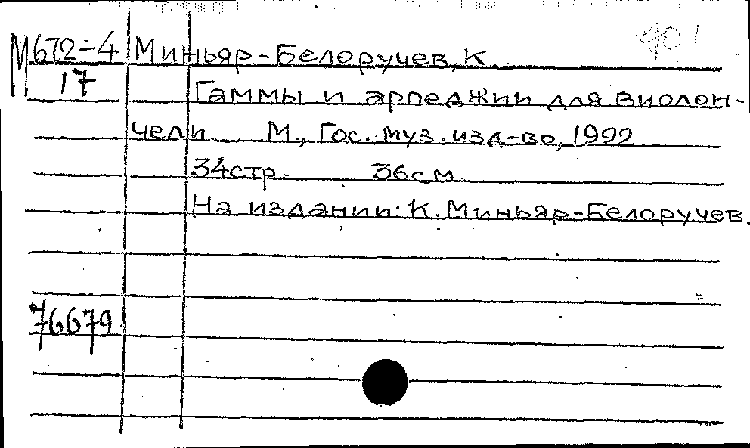 М672-4 Миньяр-Белоручев, К.
17 Гаммы и арпеджии для виолон-
чели М., Гос. муз. изд-во, 1922
34стр. 36см.
На издании: К. Миньяр-Белоручев.
76679